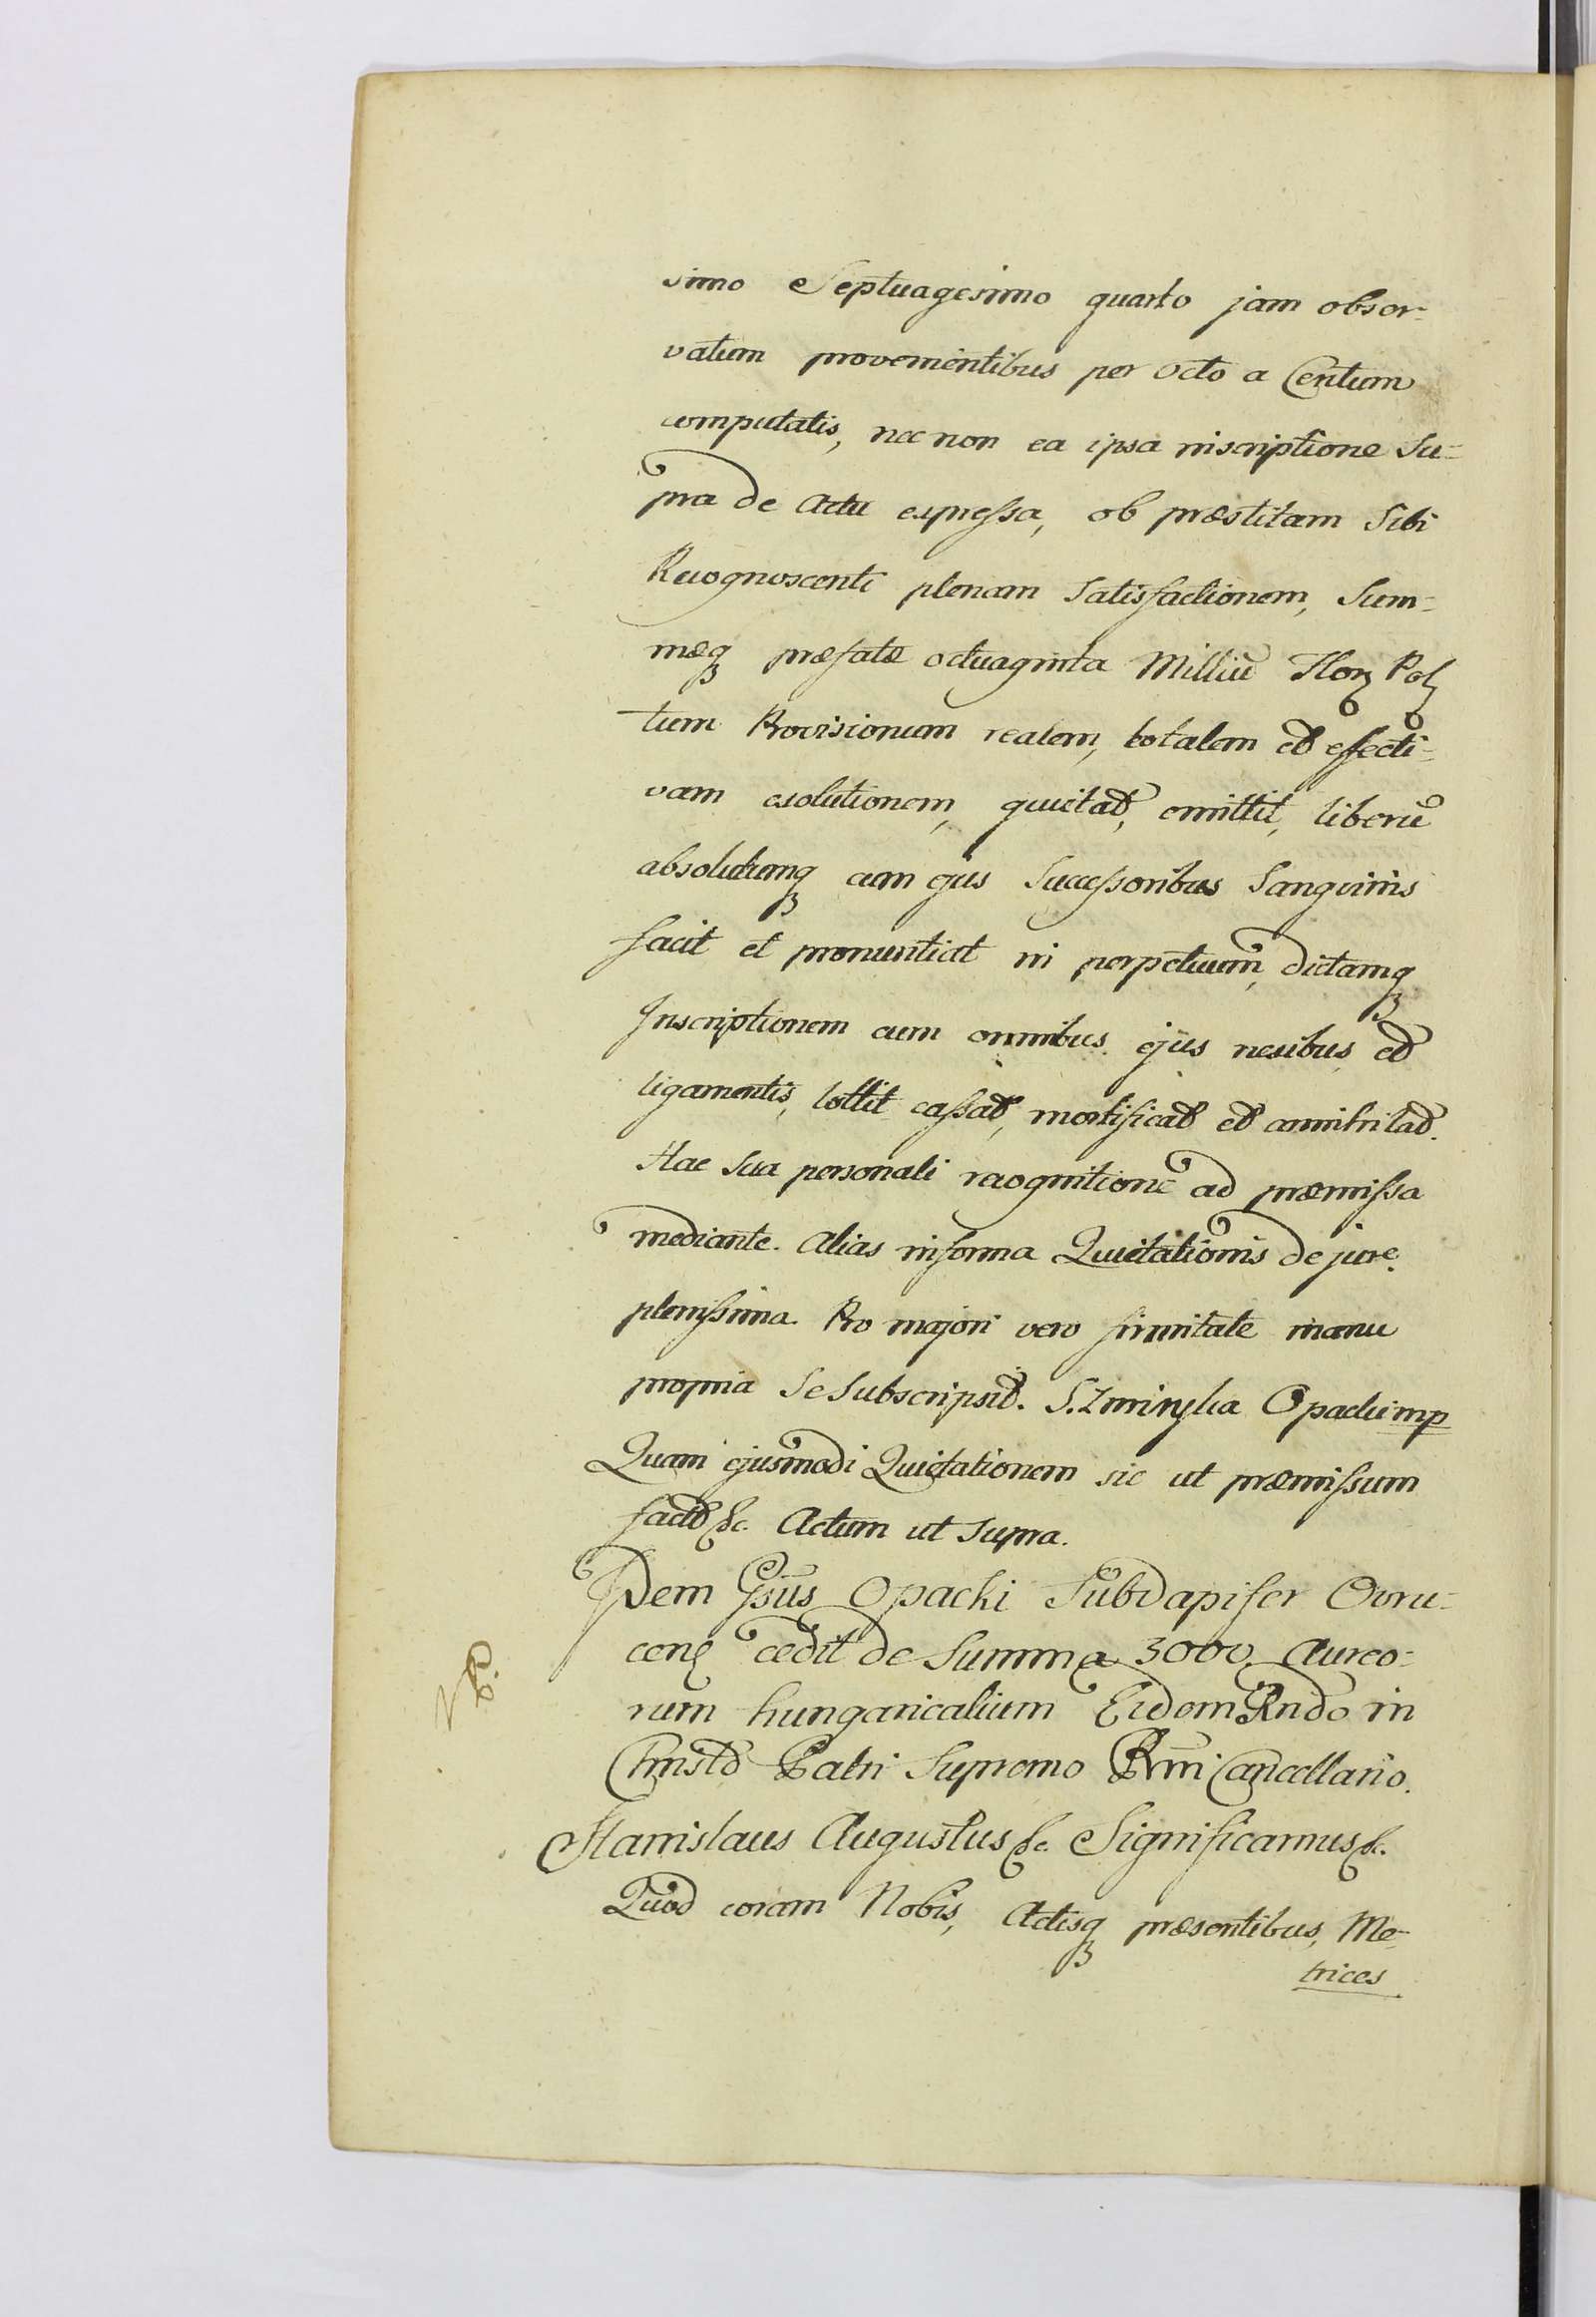 simo Septuagesimo quarto jam obser-
vatum provenientibus per octo a Centum
computatis, nec non ea ipsa inscriptione Su-
pra de Actu expressa, ob præstitam Sibi
Recognoscenti plenam Satisfactionem, Sum-
mæq præfatæ octuaginta Milliū Flor Pol
tum Provisionum realem, totalem et effecti-
vam exolutionem, quietat, emittit, liberū
absolutumq cum ejus Successoribus Sanguinis
facit et pronuntiat in perpetuum, dictamq
Inscriptionem cum omnibus ejus nexibus et
ligamentis, tollit cassat, mortificat et annihilat.
Hac Sua personali recognitione ad præmissa
mediante. Alias in forma Quietationis de jure
plenissima. Pro majori vero firmitate manu
propria Se Subscripsit. S. Opacki mp
Quam ejusmodi Quietationem sic ut præmissum
factā &c. Actum ut Supra.
Idem Gsūs Opacki Subdapifer Owru-
cen cedit de Summa 3000 Aureo-
rum hungaricalium Eidem Rndo in
Christo Patri Supremo Rni Cancellario.
Stanislaus Augustus &c. Significamus &c.
Quod coram Nobis, Actisq præsentibus, Me-
trices